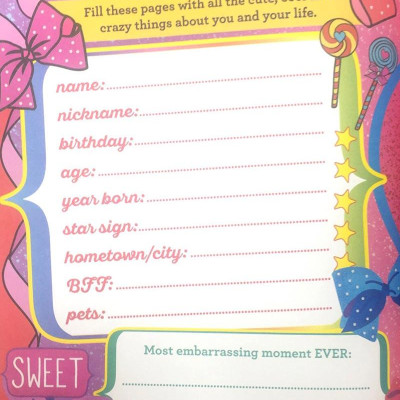 Fill these pages with all the cute,
crazy things about you and your life.
name:
nickname:
birthday:
age:
year born:
star sign:
hometown/city:
BFF:
pets:
Most embarrassing moment EVER:
SWEET